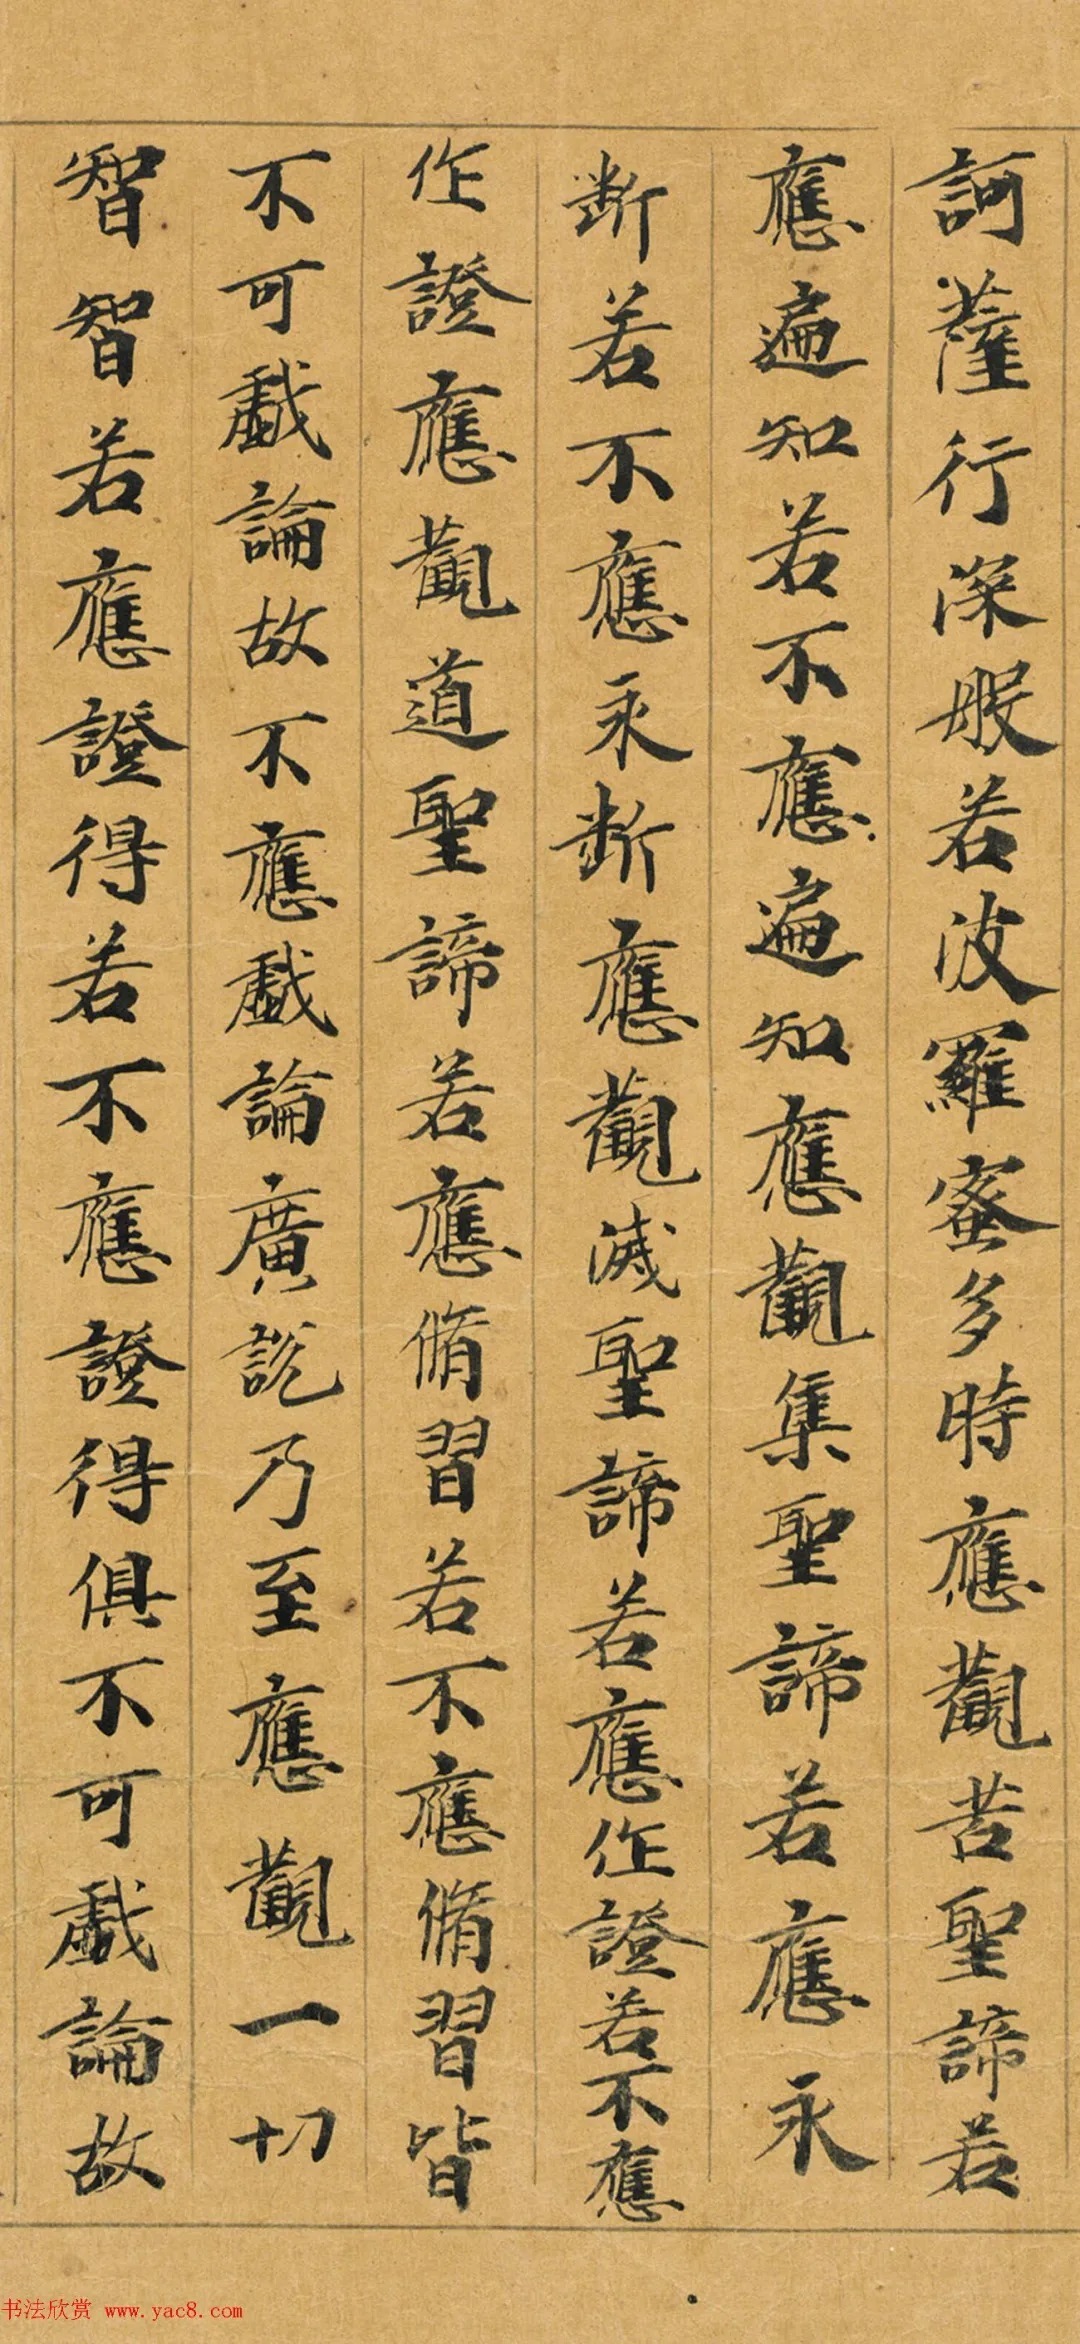 訶薩行深般若波羅蜜多時應觀苦聖諦若
應遍知若不應遍知應觀集聖諦若應永
斷若不應永斷應觀滅聖諦若應作證若不應
作證應觀道聖諦若應脩習若不應脩習皆
不可戲論故不應戲論廣說乃至應觀一切
智智若應證得若不應證得俱不可戲論故
书法欣赏 www.yac8.com